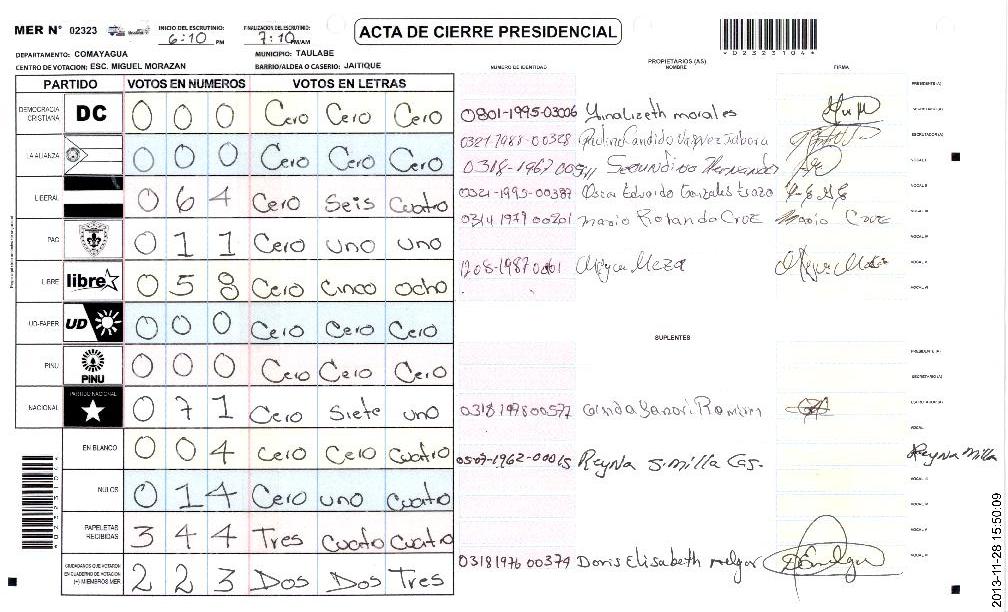 MER N° 02323
INICIO DEL ESCRUTINIO: 6:10 PM
FINALIZACION DEL ESCRUTINIO: 7:10 PM/AM
ACTA DE CIERRE PRESIDENCIAL
DEPARTAMENTO: COMAYAGUA
MUNICIPIO: TAULABE
CENTRO DE VOTACION: ESC. MIGUEL MORAZAN
BARRIO/ALDEA O CASERIO: JAITIQUE
NUMERO DE IDENTIDAD
PROPIETARIOS (AS)
NOMBRE
FIRMA
PARTIDO VOTOS EN NUMEROS VOTOS EN LETRAS
DEMOCRACIA CRISTIANA DC 0 0 0 Cero Cero Cero
LA ALIANZA 0 0 0 Cero Cero Cero
LIBERAL 0 6 4 Cero Seis Cuatro
PAC 0 1 1 Cero uno uno
LIBRE libre 0 5 8 Cero Cinco ocho
UD-FAPER UD 0 0 0 Cero Cero Cero
PINU PINU 0 0 0 Cero Cero Cero
NACIONAL PARTIDO NACIONAL 0 7 1 Cero Siete uno
EN BLANCO 0 0 4 Cero Cero Cuatro
NULOS 0 1 4 Cero uno Cuatro
PAPELETAS RECIBIDAS 3 4 4 Tres Cuatro Cuatro
CIUDADANOS QUE VOTARON EN CUADERNO DE VOTACION (+) MIEMBROS MER 2 2 3 Dos Dos Tres
PRESIDENTE(A)
0801-1995-03006 morales
SECRETARIO(A)
0321-1988-00328
ESCRUTADOR(A)
0318-1967 Segundino Hernandez
VOCAL I
0321-1995-00387 Oscar Eduardo Gonzales
VOCAL II
0314 1979 00201 mario Rolando Cruz Mario Cruz
VOCAL III
Meza
SUPLENTES
PRESIDENTE(A)
SECRETARIO(A)
0318199800577
ESCRUTADOR(A)
VOCAL
0507-1962-00015 Reyna S. milla Reyna Milla
03181976 00379 Doris Elisabeth melgar
2013-11-28 15:50:09